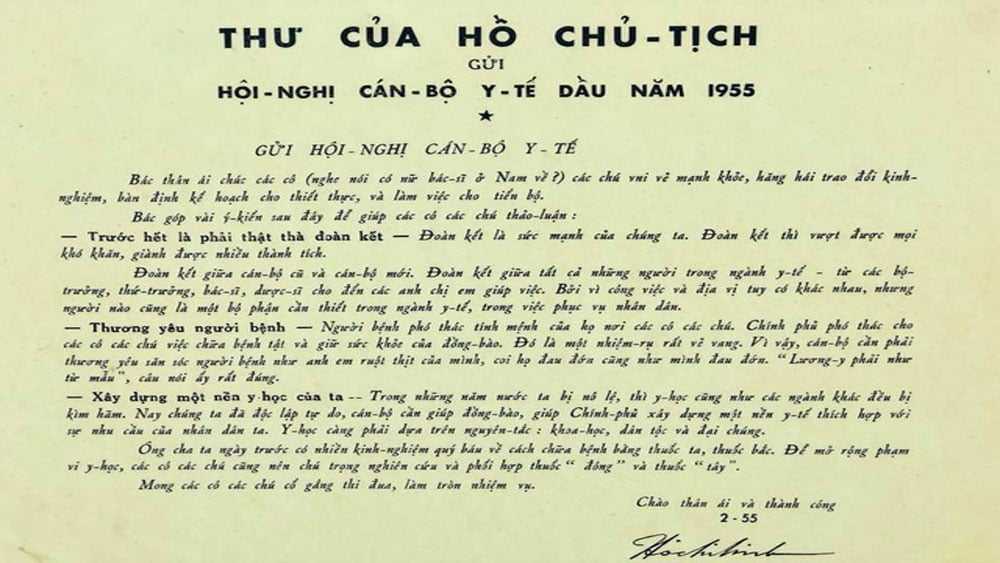 THƯ CỦA HỒ CHỦ-TỊCH
GỬI
HỘI-NGHỊ CÁN-BỘ Y-TẾ DẦU NĂM 1955
★
GỬI HỘI-NGHỊ CÁN-BỘ Y-TẾ
Bác thân ái chúc các cô (nghe nói có nữ bác-sĩ ở Nam về ?) các chú vui vẻ mạnh khỏe, hăng hái trao đổi kinh-
nghiệm, bàn định kế hoạch cho thiết thực, và làm việc cho tiến bộ.
Bác góp vài ý-kiến sau đây để giúp các cô các chú thảo-luận :
— Trước hết là phải thật thà đoàn kết — Đoàn kết là sức mạnh của chúng ta. Đoàn kết thì vượt được mọi
khó khăn, giành được nhiều thành tích.
Đoàn kết giữa cán-bộ cũ và cán-bộ mới. Đoàn kết giữa tất cả những người trong ngành y-tế - từ các bộ-
trưởng, thứ-trưởng, bác-sĩ, dược-sĩ cho đến các anh chị em giúp việc. Bởi vì công việc và địa vị tuy có khác nhau, nhưng
người nào cũng là một bộ phận cần thiết trong ngành y-tế, trong việc phục vụ nhân dân.
— Thương yêu người bệnh — Người bệnh phó thác tính mệnh của họ nơi các cô các chú. Chính phủ phó thác cho
các cô các chú việc chữa bệnh tật và giữ sức khỏe của đồng-bào. Đó là một nhiệm-vụ rất vẻ vang. Vì vậy, cán-bộ cần phải
thương yêu săn sóc người bệnh như anh em ruột thịt của mình, coi họ đau đớn cũng như mình đau đớn. “Lương-y phải như
từ mẫu”, câu nói ấy rất đúng.
— Xây dựng một nền y-học của ta -- Trong những năm nước ta bị nô lệ, thì y-học cũng như các ngành khác đều bị
kìm hãm. Nay chúng ta đã độc lập tự do, cán-bộ cần giúp đồng-bào, giúp Chính-phủ xây dựng một nền y-tế thích hợp với
sự nhu cầu của nhân dân ta. Y-học càng phải dựa trên nguyên-tắc : khoa-học, dân tộc và đại chúng.
Ông cha ta ngày trước có nhiều kinh-nghiệm quý báu về cách chữa bệnh bằng thuốc ta, thuốc bắc. Để mở rộng phạm
vi y-học, các cô các chú cũng nên chú trọng nghiên cứu và phối hợp thuốc “ đông” và thuốc “tây”.
Mong các cô các chú cố gắng thi đua, làm tròn nhiệm vụ.
Chào thân ái và thành công
2 - 55
Hồ Chí Minh